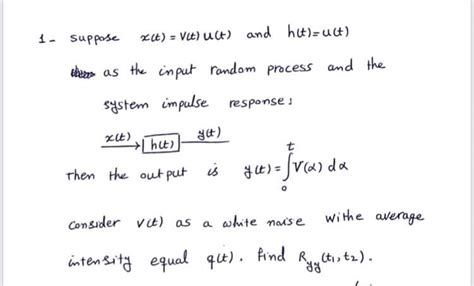 1- suppose x(t) = V(t) u(t) and h(t) = u(t)
as the input random process and the
system impulse response:
x(t) h(t) y(t)
Then the output is y(t) = ∫₀ᵗ V(α) dα
Consider V(t) as a white noise withe average
intensity equal q(t). Find Ryy(t₁,t₂).